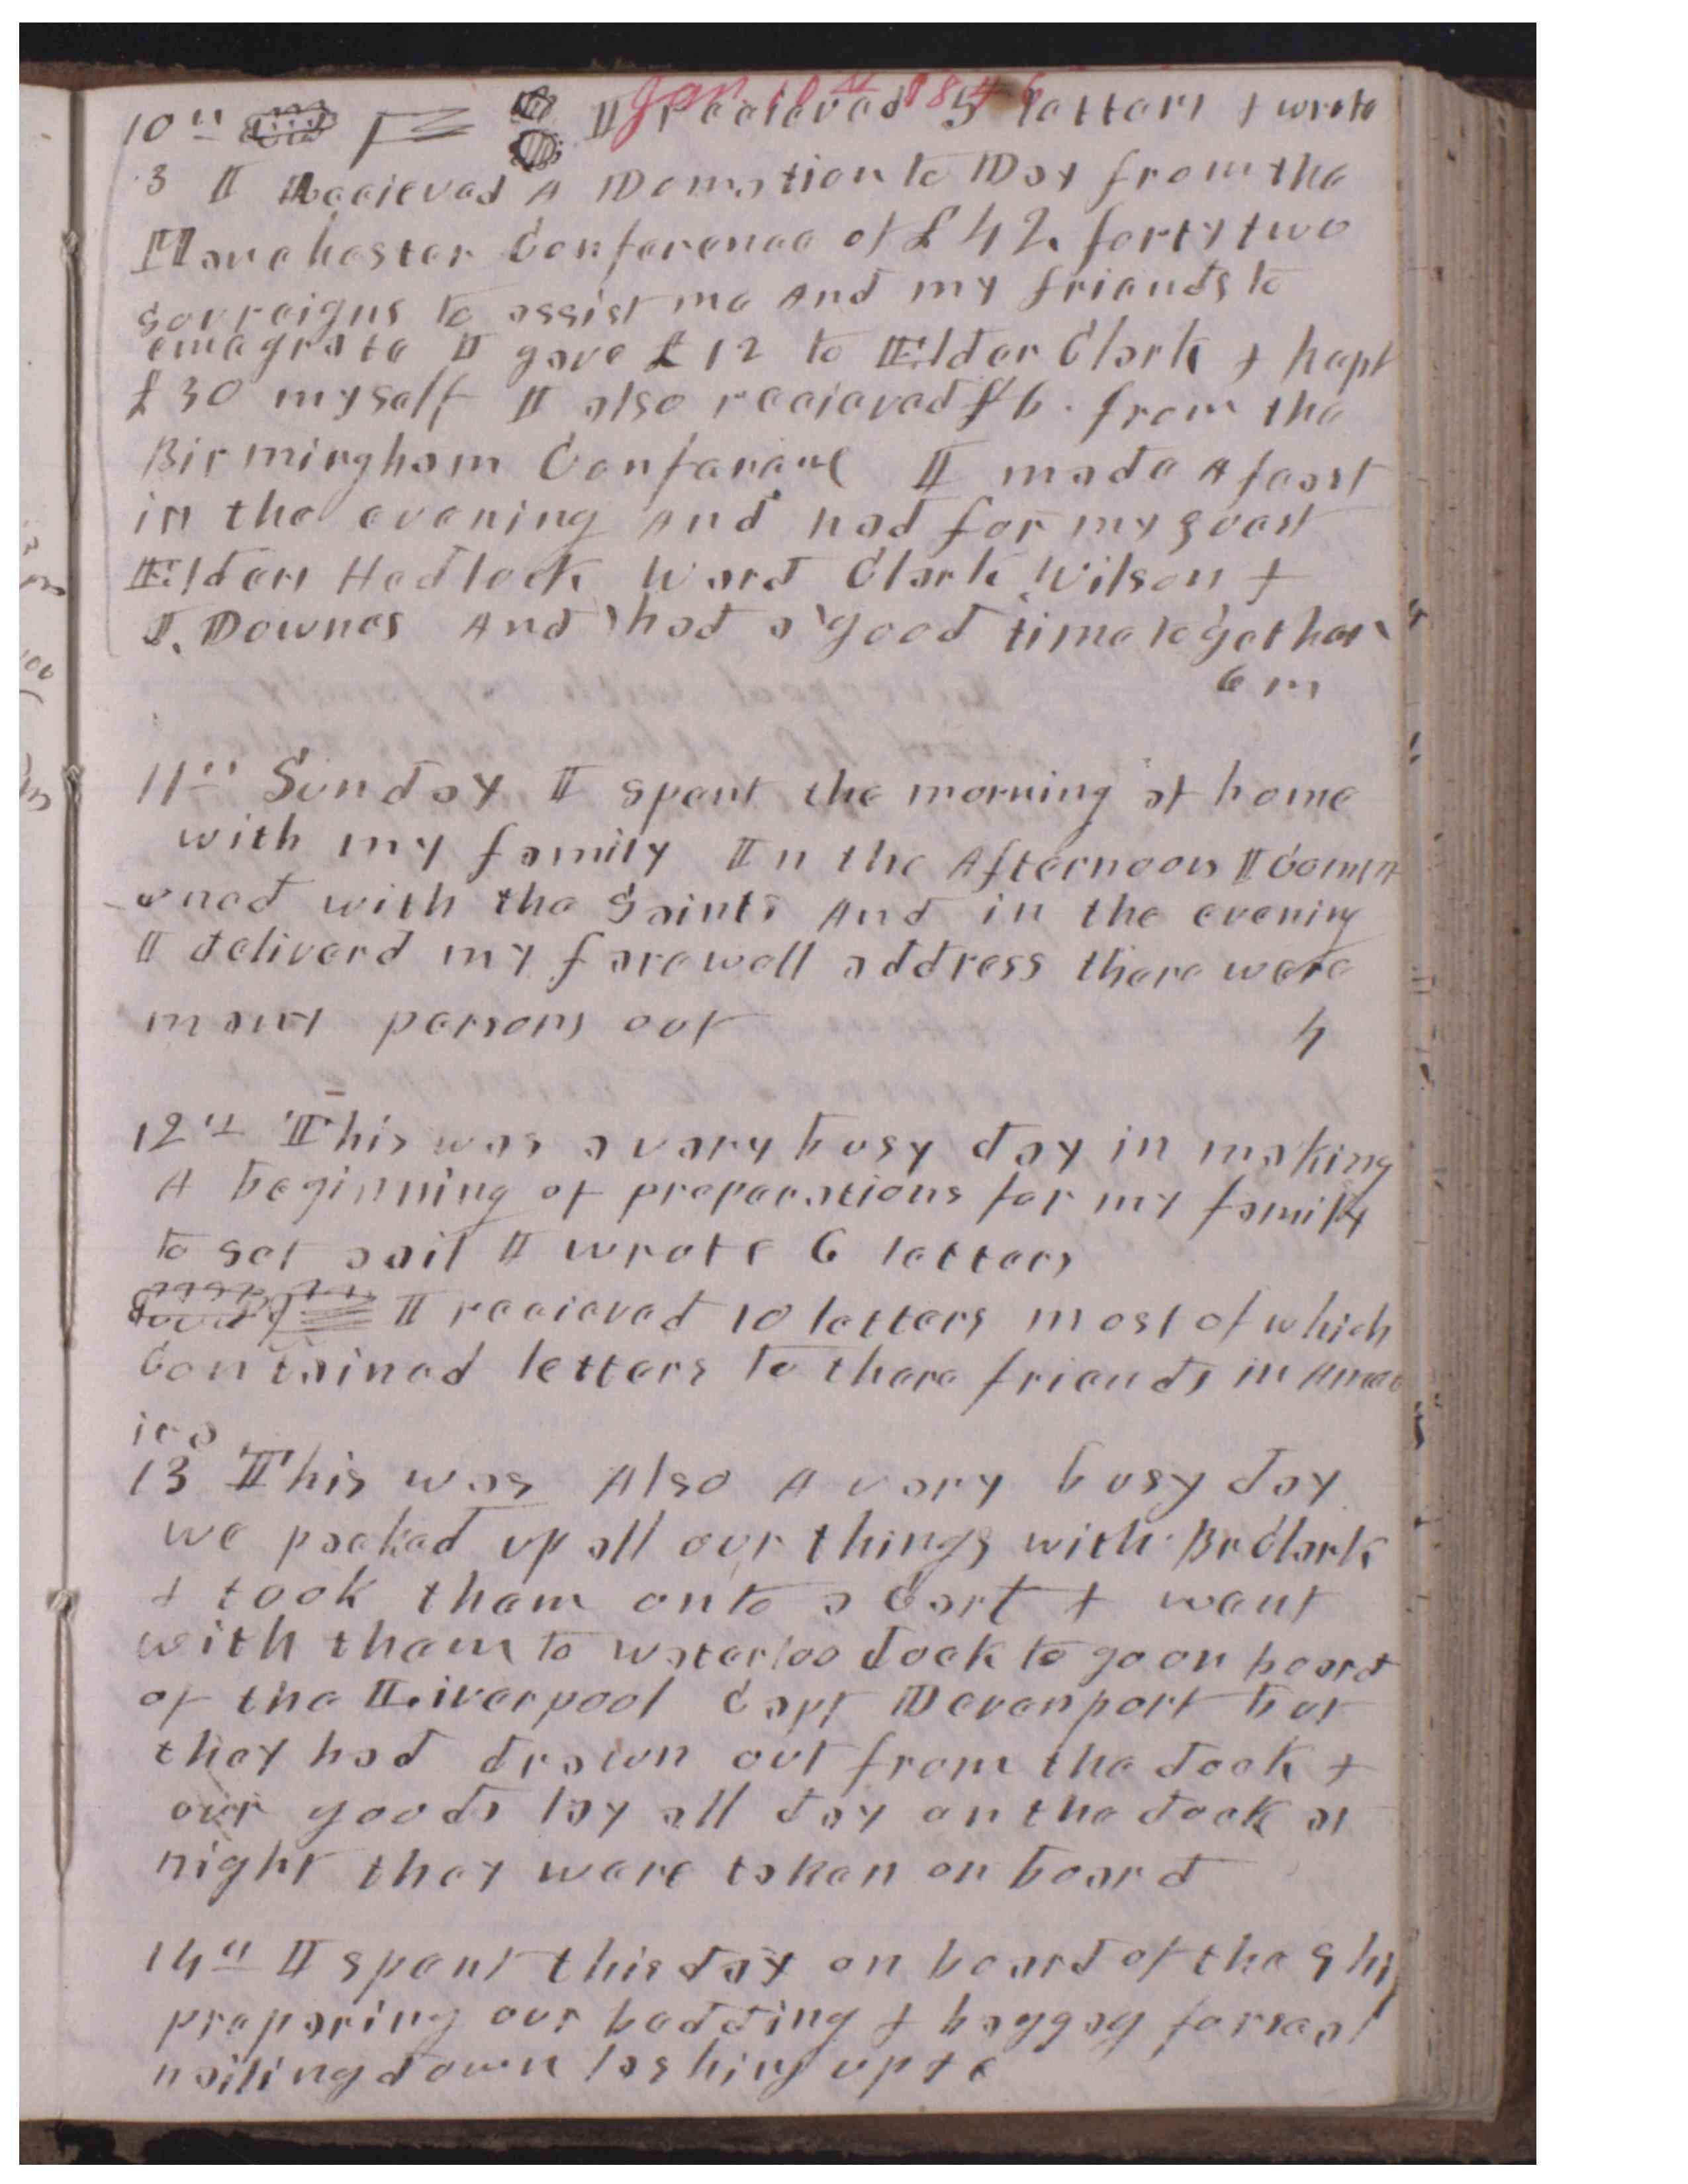 Jan 10th 1846
10th I recieved 5 letters & wrote
3 I Recieved A Donation to Day from the
Manchester Conference of £42. forty two
sovreigns to assist me And my friends to
emagrate I gave £12 to Elder Clark & kept
£30 myself I also recieved £6. from the
Birmingham Conference I made A feast
in the evening And had for my guest
Elders Hedlock Ward Clark Wilson &
J. Downes And had a good time together
6 m
11th Sunday I spent the morning at home
with my family In the Afternoon I Commu
uned with the Saints And in the evening
I deliverd my farewell address there were
many persons out 4
12th This was a very busy day in making
A beginning of preparations for my family
to set sail I wrote 6 letters
I recieved 10 letters most of which
Contained letters to there friends in Amer
ica
13 This was Also A very busy day
we packed up all our things with Br Clark
& took them onto a Cart & went
with them to waterloo dock to go on board
of the Liverpool Capt Devenport but
they had drawn out from the dock &
our goods lay all day on the dock at
night they were taken on board
14th I spent this day on board of the Shi
preparing our bedding & baggag for sea
nailing down lashing up &c